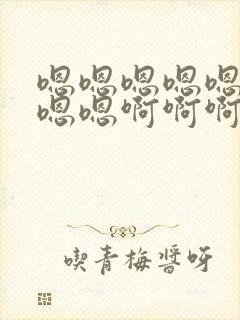 嗯嗯嗯嗯嗯
嗯嗯啊啊啊
喫青梅醬呀